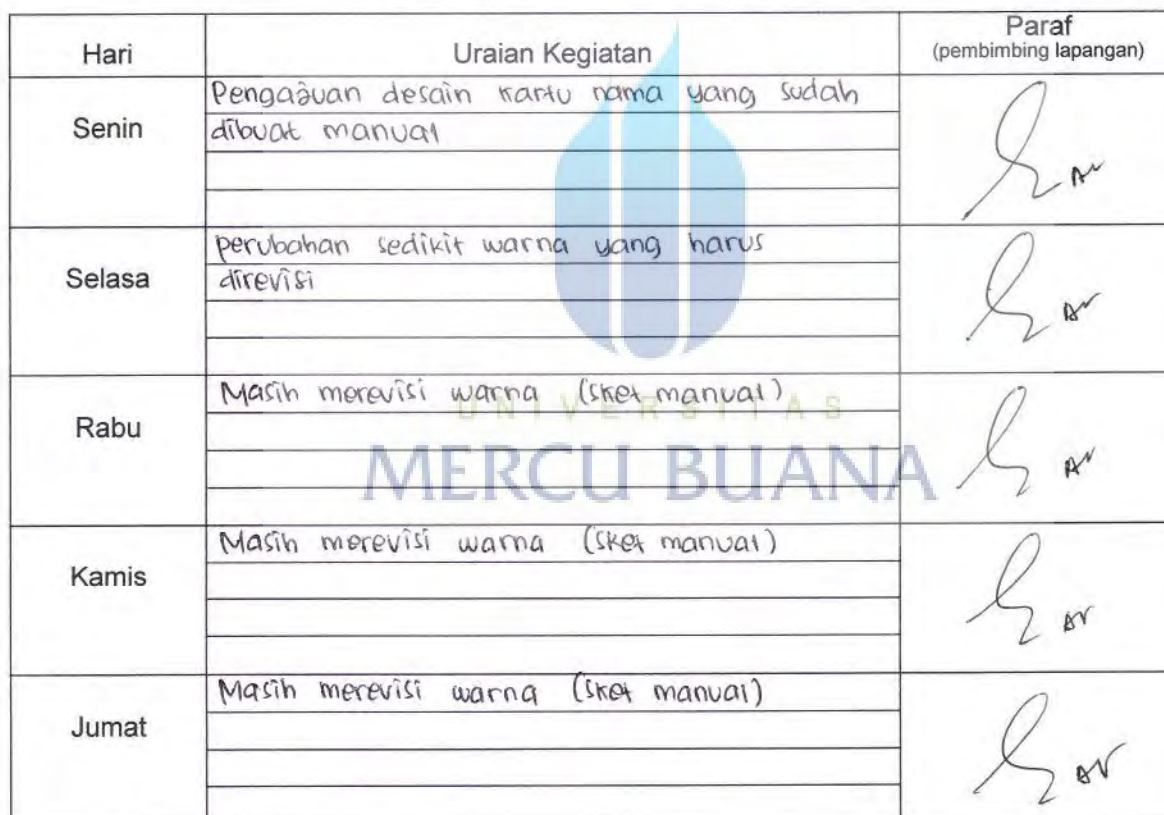 Hari Uraian Kegiatan Paraf
(pembimbing lapangan)
Senin
Pengajuan desain kartu nama yang sudah
dibuat manual
Selasa
perubahan sedikit warna yang harus
direvisi
Rabu
Masih merevisi warna (sket manual)
UNIVERSITAS
MERCU BUANA
Kamis
Masih merevisi warna (sket manual)
Jumat
Masih merevisi warna (sket manual)